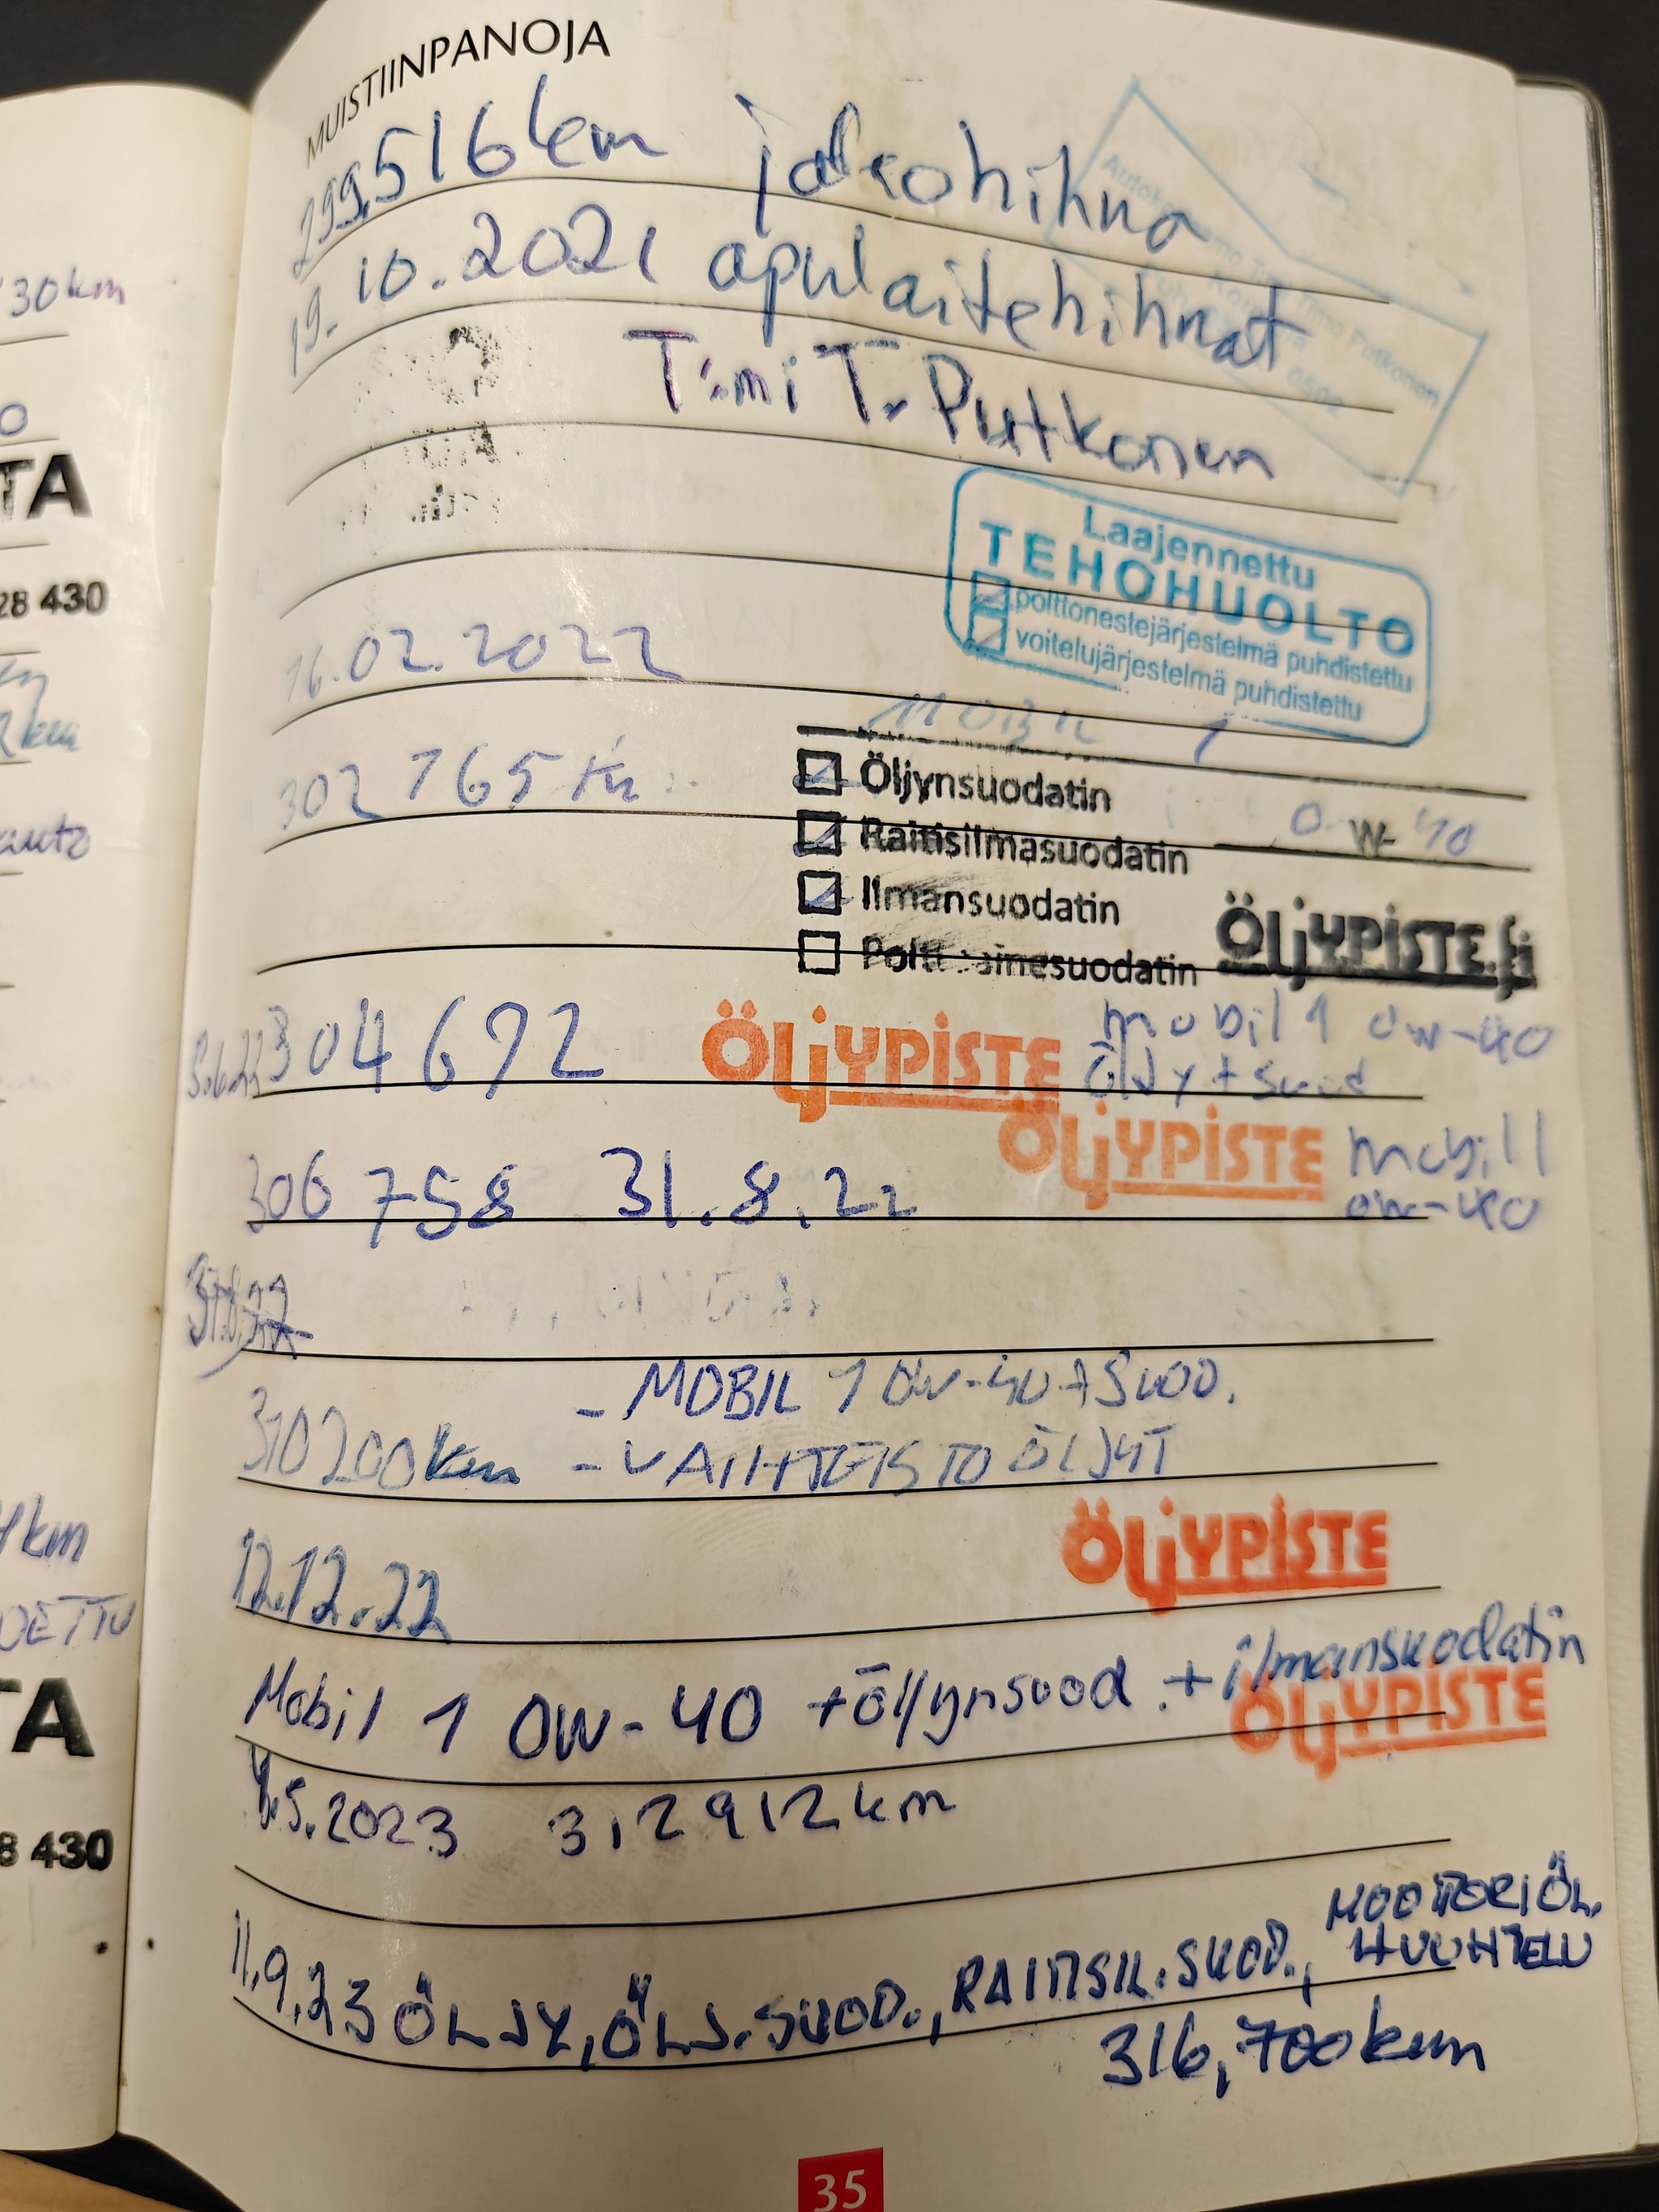 MUISTIINPANOJA
299,516 km jakohihna
19.10.2021 apulaitehihnat
T:mi T. Putkonen
Laajennettu
TEHOHUOLTO
polttonestejärjestelmä puhdistettu
voitelujärjestelmä puhdistettu
16.02.2022
MOBIL 1
302 765 km
Öljynsuodatin
0 W- 40
Raitisilmasuodatin
Ilmansuodatin
ÖLJYPISTE.fi
Polttoainesuodatin
304 692 ÖLJYPISTE mobil 1 0w-40
öljy + suod
306 758 31.8.22 ÖLJYPISTE mobil 1
0w-40
- MOBIL 1 0W-40 + SUOD.
310200km - VAIHTEISTOÖLJYT
ÖLJYPISTE
12.12.22
Mobil 1 0W-40 + öljynsuod. + ilmansuodatin
ÖLJYPISTE
.5.2023 312912km
11.9.23 ÖLJY, ÖLJ.SUOD., RAITISIL.SUOD., MOOTTORIÖL.
HUUHTELU
316,700km
35
30km
0
TA
28 430
km
auto
km
TA
8 430